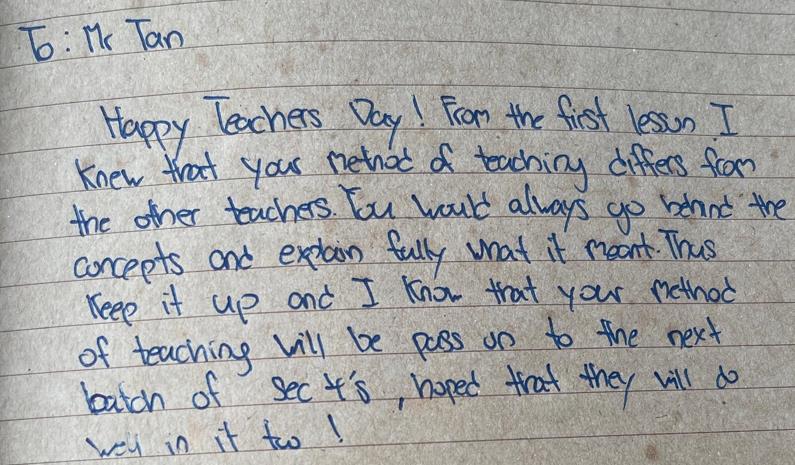 To: Mr Tan
Happy Teachers Day! From the first lesson I
knew that your method of teaching differs from
the other teachers. You would always go behind the
concepts and explain fully what it meant. Thus
keep it up and I know that your method
of teaching will be pass on to the next
batch of sec 4's, hoped that they will do
well in it too!